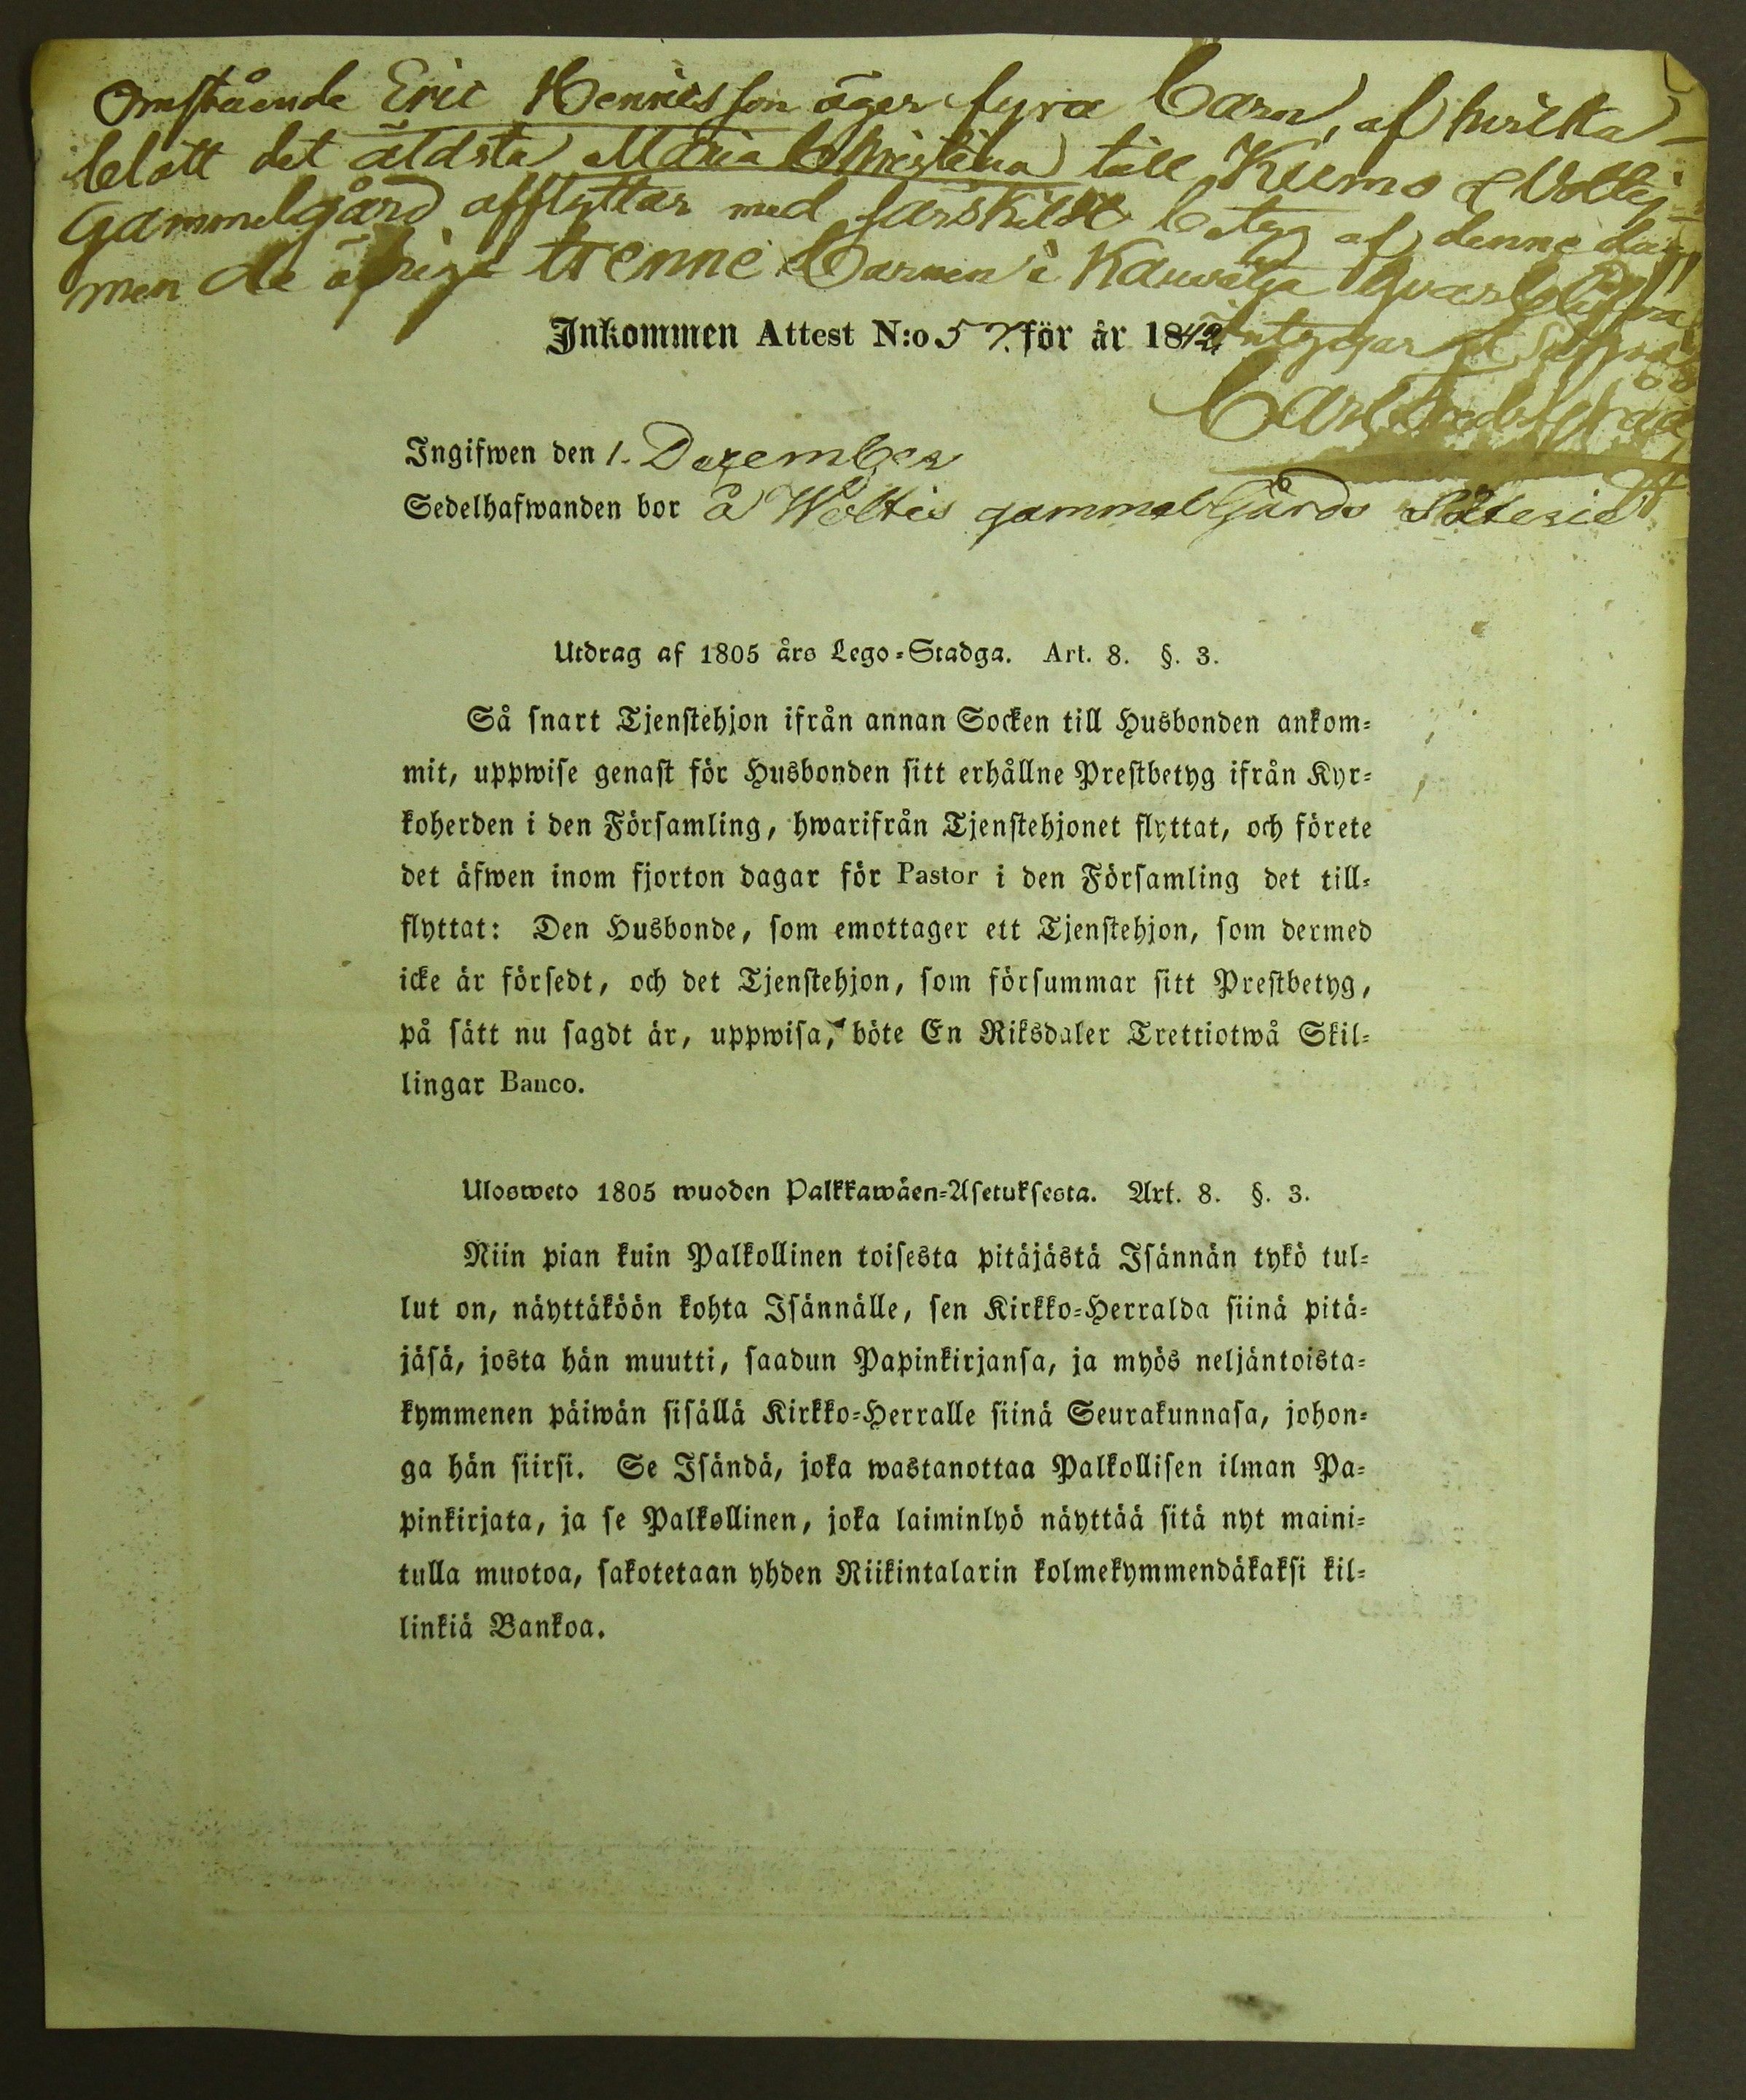 Omstående Eric Henricsson äger fyra barn, af hvilka
blott det äldsta Maria Christina till Kumo & Voltis
gammelgård afflyttar med särskildt betyg af denne dag
men de öfrige trenne barnen i Kauvatsa qvarblifva
Inkommen Attest N:o 57. för år 1842
intygar
Carl Fredr
Ingifwen den 1. December
Sedelhafwanden bor å Woltis gammelgårds Säterie
Utdrag af 1805 års Lego-Stadga. Art. 8. §. 3.
Så snart Tjenstehjon ifrån annan Socken till Husbonden ankom-
mit, uppwise genast för Husbonden sitt erhållne Prestbetyg ifrån Kyr-
koherden i den Församling, hwarifrån Tjenstehjonet flyttat, och förete
det äfwen inom fjorton dagar för Pastor i den Församling det till-
flyttat: Den Husbonde, som emottager ett Tjenstehjon, som dermed
icke är försedt, och det Tjenstehjon, som försummar sitt Prestbetyg,
på sätt nu sagdt är, uppwisa, böte En Riksdaler Trettiotwå Skil-
lingar Banco.
Ulosweto 1805 wuoden Palkkawäen-Asetuksesta. Art. 8. §. 3.
Niin pian kuin Palkollinen toisesta pitäjästä Isännän tykö tul-
lut on, näyttäköön kohta Isännälle, sen Kirkko-Herralda siinä pitä-
jäsä, josta hän muutti, saadun Papinkirjansa, ja myös neljäntoista-
kymmenen päiwän sisällä Kirkko-Herralle siinä Seurakunnasa, johon-
ga hän siirsi. Se Isändä, joka wastanottaa Palkollisen ilman Pa-
pinkirjata, ja se Palkollinen, joka laiminlyö näyttää sitä nyt maini-
tulla muotoa, sakotetaan yhden Riikintalarin kolmekymmendäkaksi kil-
linkiä Bankoa.